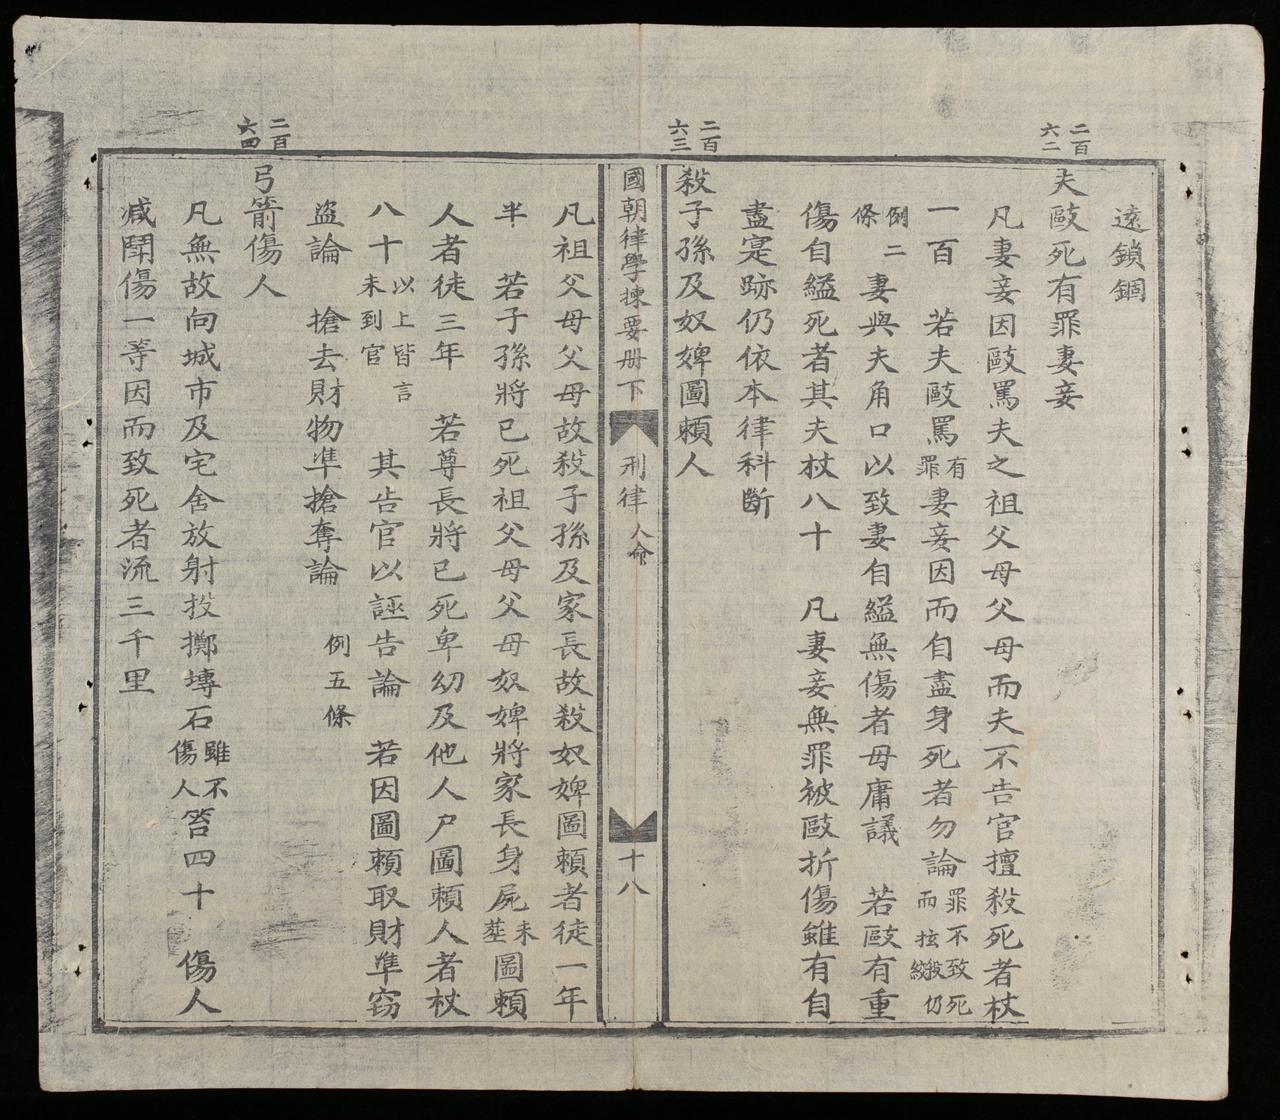 遠鎖錮
二百六二
夫毆死有罪妻妾
凡妻妾因毆罵夫之祖父母父母而夫不告官擅殺死者杖
一百 若夫毆罵有罪妻妾因而自盡身死者勿論罪不致死而擅殺仍絞
例二條 妻與夫角口以致妻自縊無傷者毋庸議 若毆有重
傷自縊死者其夫杖八十 凡妻妾無罪被毆折傷雖有自
盡寔跡仍依本律科斷
二百六三
殺子孫及奴婢圖賴人
國朝律學揀要册下 刑律 人命 十八
凡祖父母父母故殺子孫及家長故殺奴婢圖賴者徒一年
半 若子孫將已死祖父母父母奴婢將家長身屍未塟圖賴
人者徒三年 若尊長將已死卑幼及他人户圖賴人者杖
八十以上皆言未到官 其告官以誣告論 若因圖賴取財準窃
盜論 搶去財物凖搶奪論 例五條
二百六四
弓箭傷人
凡無故向城市及宅舍放射投擲塼石雖不傷人笞四十 傷人
减鬪傷一等因而致死者流三千里